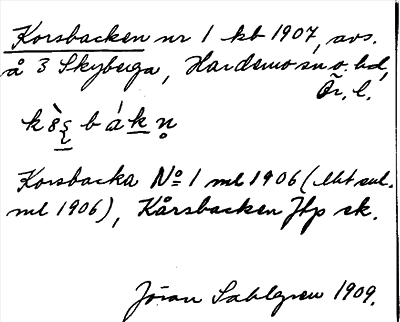 Korsbacken nr 1 kb 1907, avs.
å 3 Skyberga, Hardemo sn o. hd,
Ör. l.
bákn̥
Korsbacka No 1 ml 1906 (
ml 1906), Kårsbacken Jfp sk.
Jöran Sahlgren 1909.